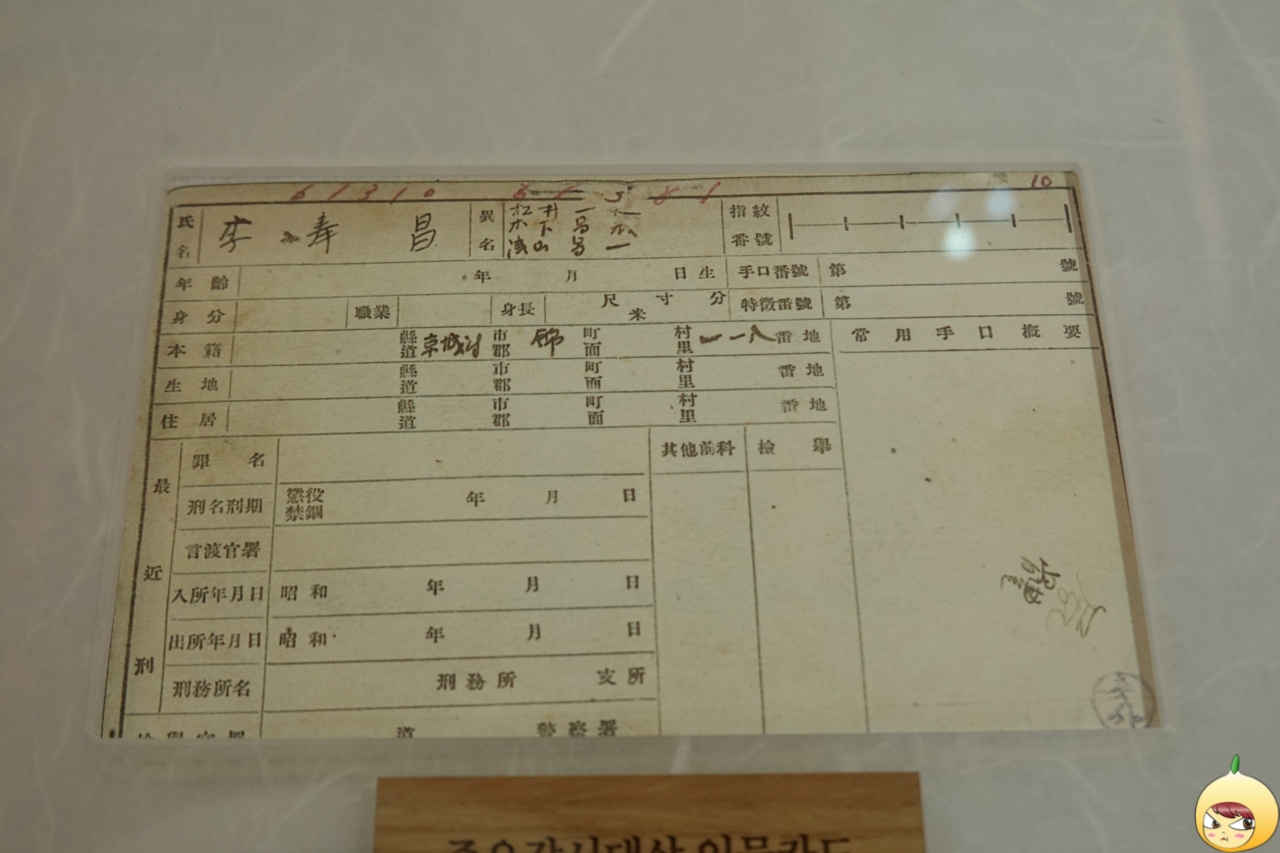 61310
氏名 李奉昌 異名 木下昌 淺山昌一 指紋番號 10
年齡 年 月 日生 手口番號 第 號
身分 職業 身長 尺 寸 分 米 特徵番號 第 號
本籍 縣道 京城府 市郡 錦 町面 村里 一一八 番地 常用手口概要
生地 縣道 市郡 町面 村里 番地
住居 縣道 市郡 町面 村里 番地
最近刑 罪名 其他前科 檢擧
刑名刑期 懲役 禁錮 年 月 日
言渡官署
入所年月日 昭和 年 月 日
出所年月日 昭和 年 月 日
刑務所名 刑務所 支所
檢擧官署 道 警察署
주요감시대상 인물카드